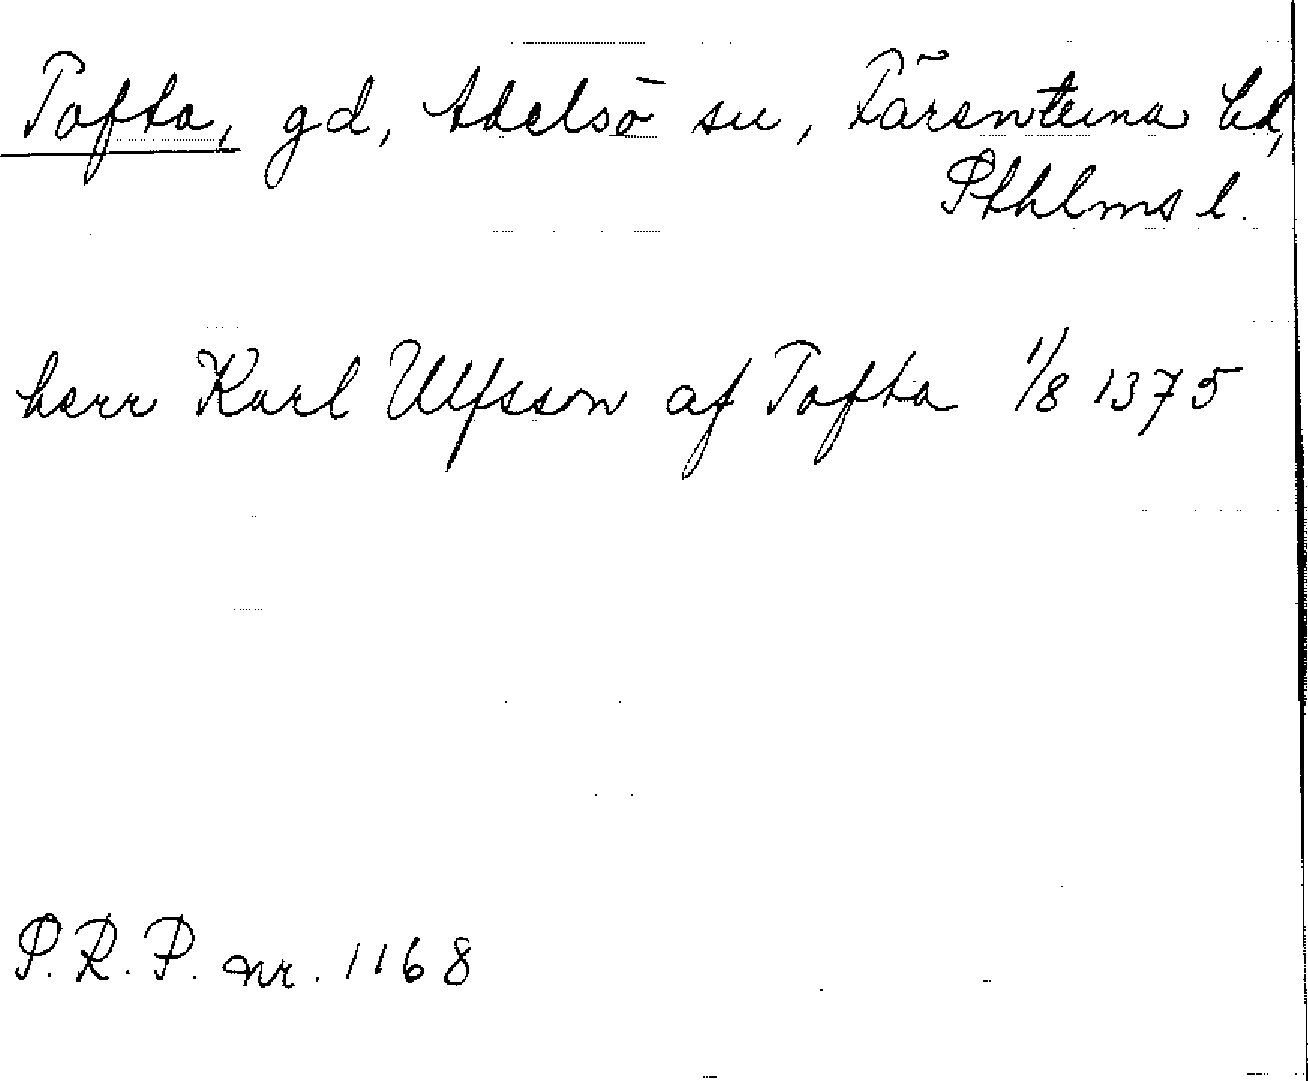 Tofta, gd, Adelsö sn, Färentuna hd,
Sthlms l.
herr Karl Ulfsson af Tofta 1/8 1375
S.R.P. nr. 1168